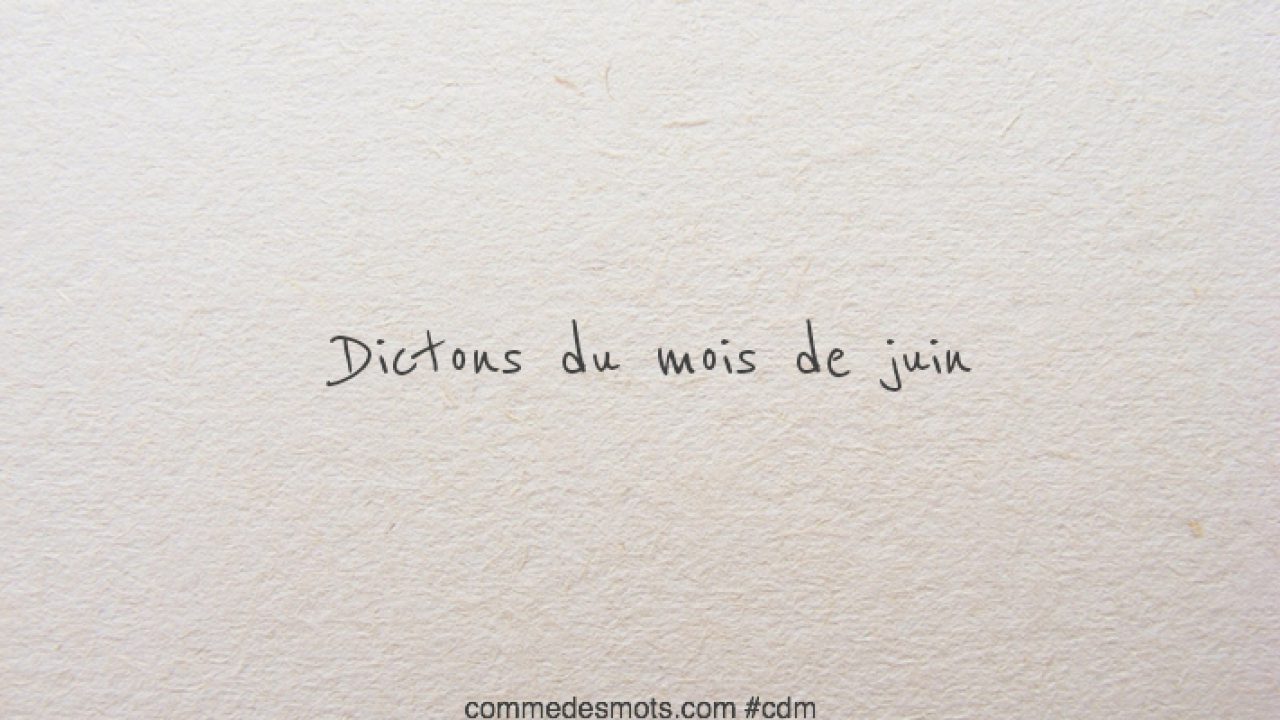 Dictons du mois de juin
commedesmots.com #cdm